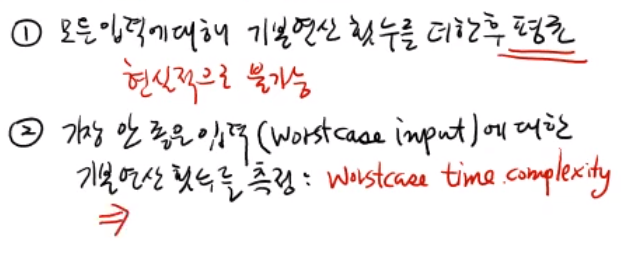 ① 모든 입력에 대해 기본연산 횟수를 더한 후 평균
현실적으로 불가능
② 가장 안 좋은 입력 (worstcase input)에 대한
기본연산 횟수를 측정 : worstcase time complexity
⇒